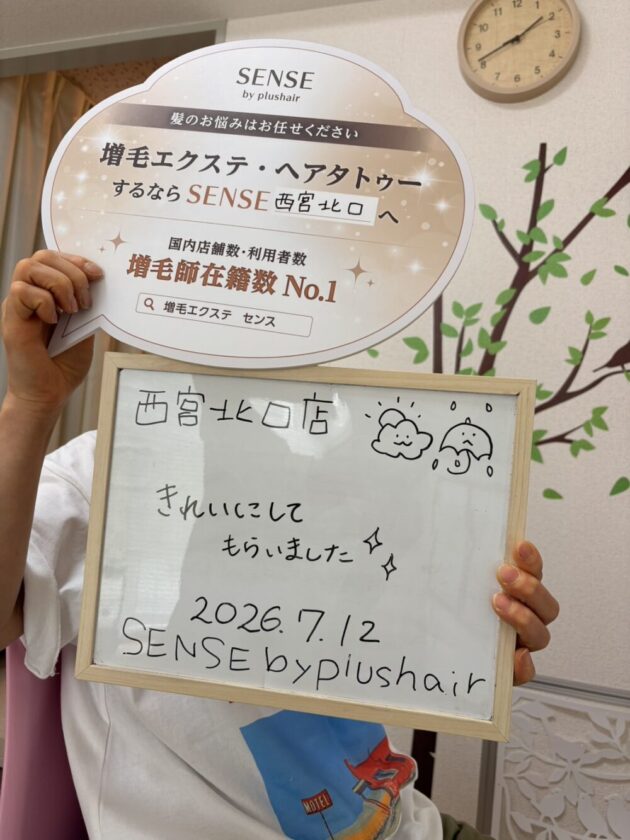 SENSE
by plushair
髪のお悩みはお任せください
増毛エクステ・ヘアタトゥー
するなら SENSE 西宮北口 へ
国内店舗数・利用者数
増毛師在籍数 No.1
増毛エクステ センス
西宮北口店
きれいにして
もらいました
2026.7.12
SENSE by plushair
MOTEL